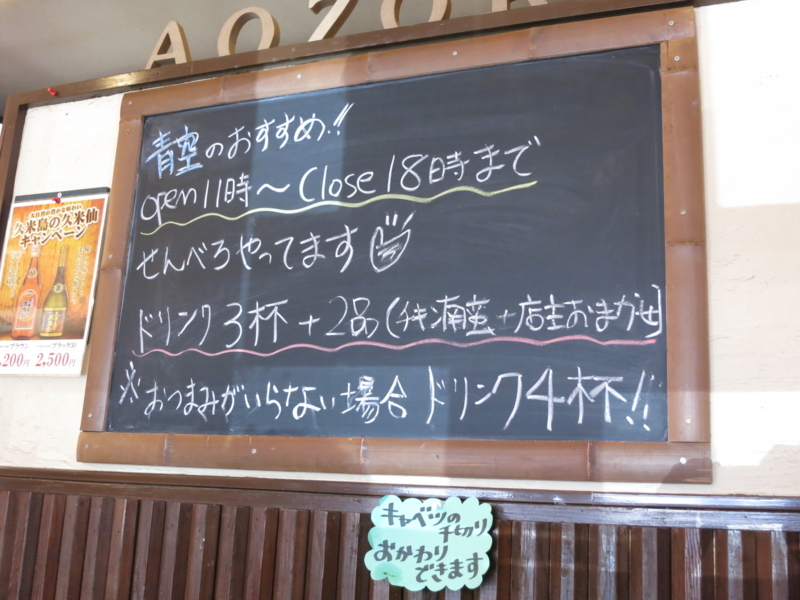 AOZOR
青空のおすすめ!!
open 11時～Close 18時まで
せんべろやってます
ドリンク3杯+2品(チキン南蛮+店主おまかせ)
※おつまみがいらない場合 ドリンク4杯!!
久米島の久米仙
キャンペーン
,200円
2,500円
キャベツの
千切り
おかわり
できます